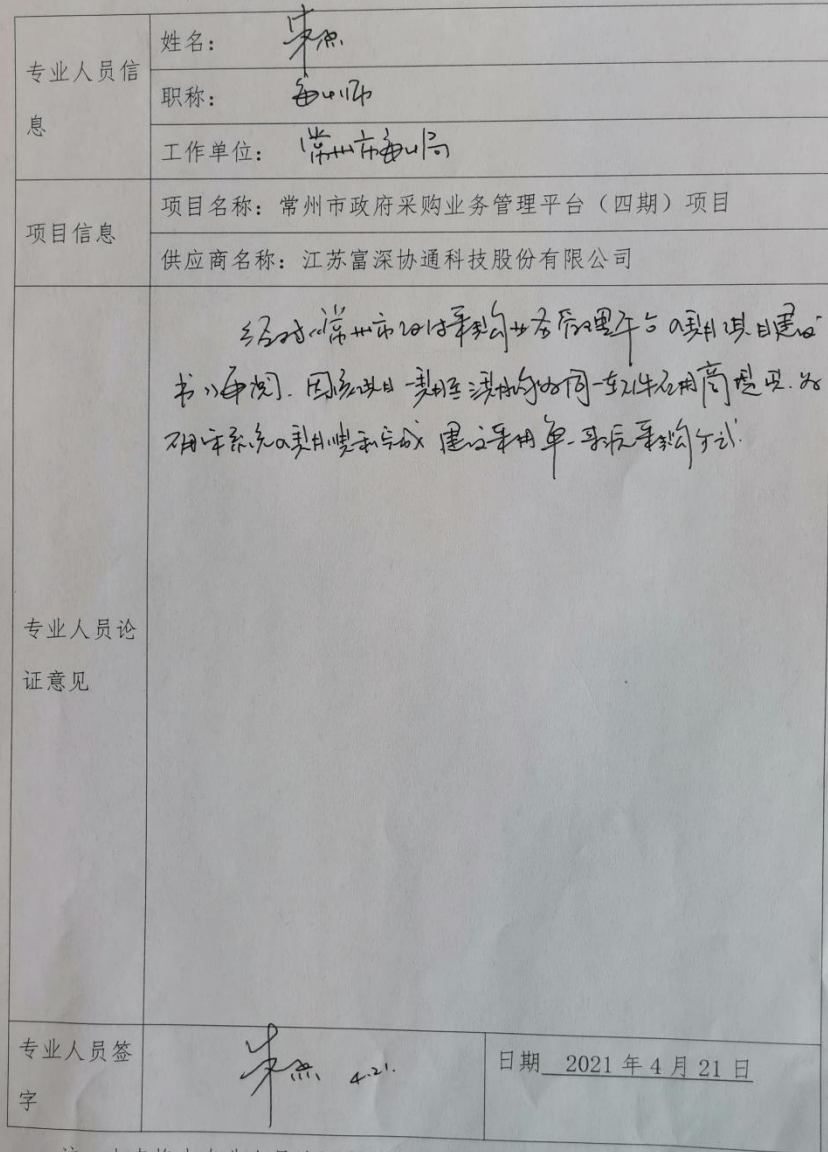 专业人员信息
姓名：朱
职称：
工作单位：常州市局
项目信息
项目名称：常州市政府采购业务管理平台（四期）项目
供应商名称：江苏富深协通科技股份有限公司
专业人员论证意见
经对《常州市政府采购业务管理平台四期项目建议
书》审阅，因该项目一期至三期均为同一软件应用商提供，为
确保系统四期顺利完成，建议采用单一来源采购方式。
专业人员签字
朱 4.21.
日期 2021 年 4 月 21 日